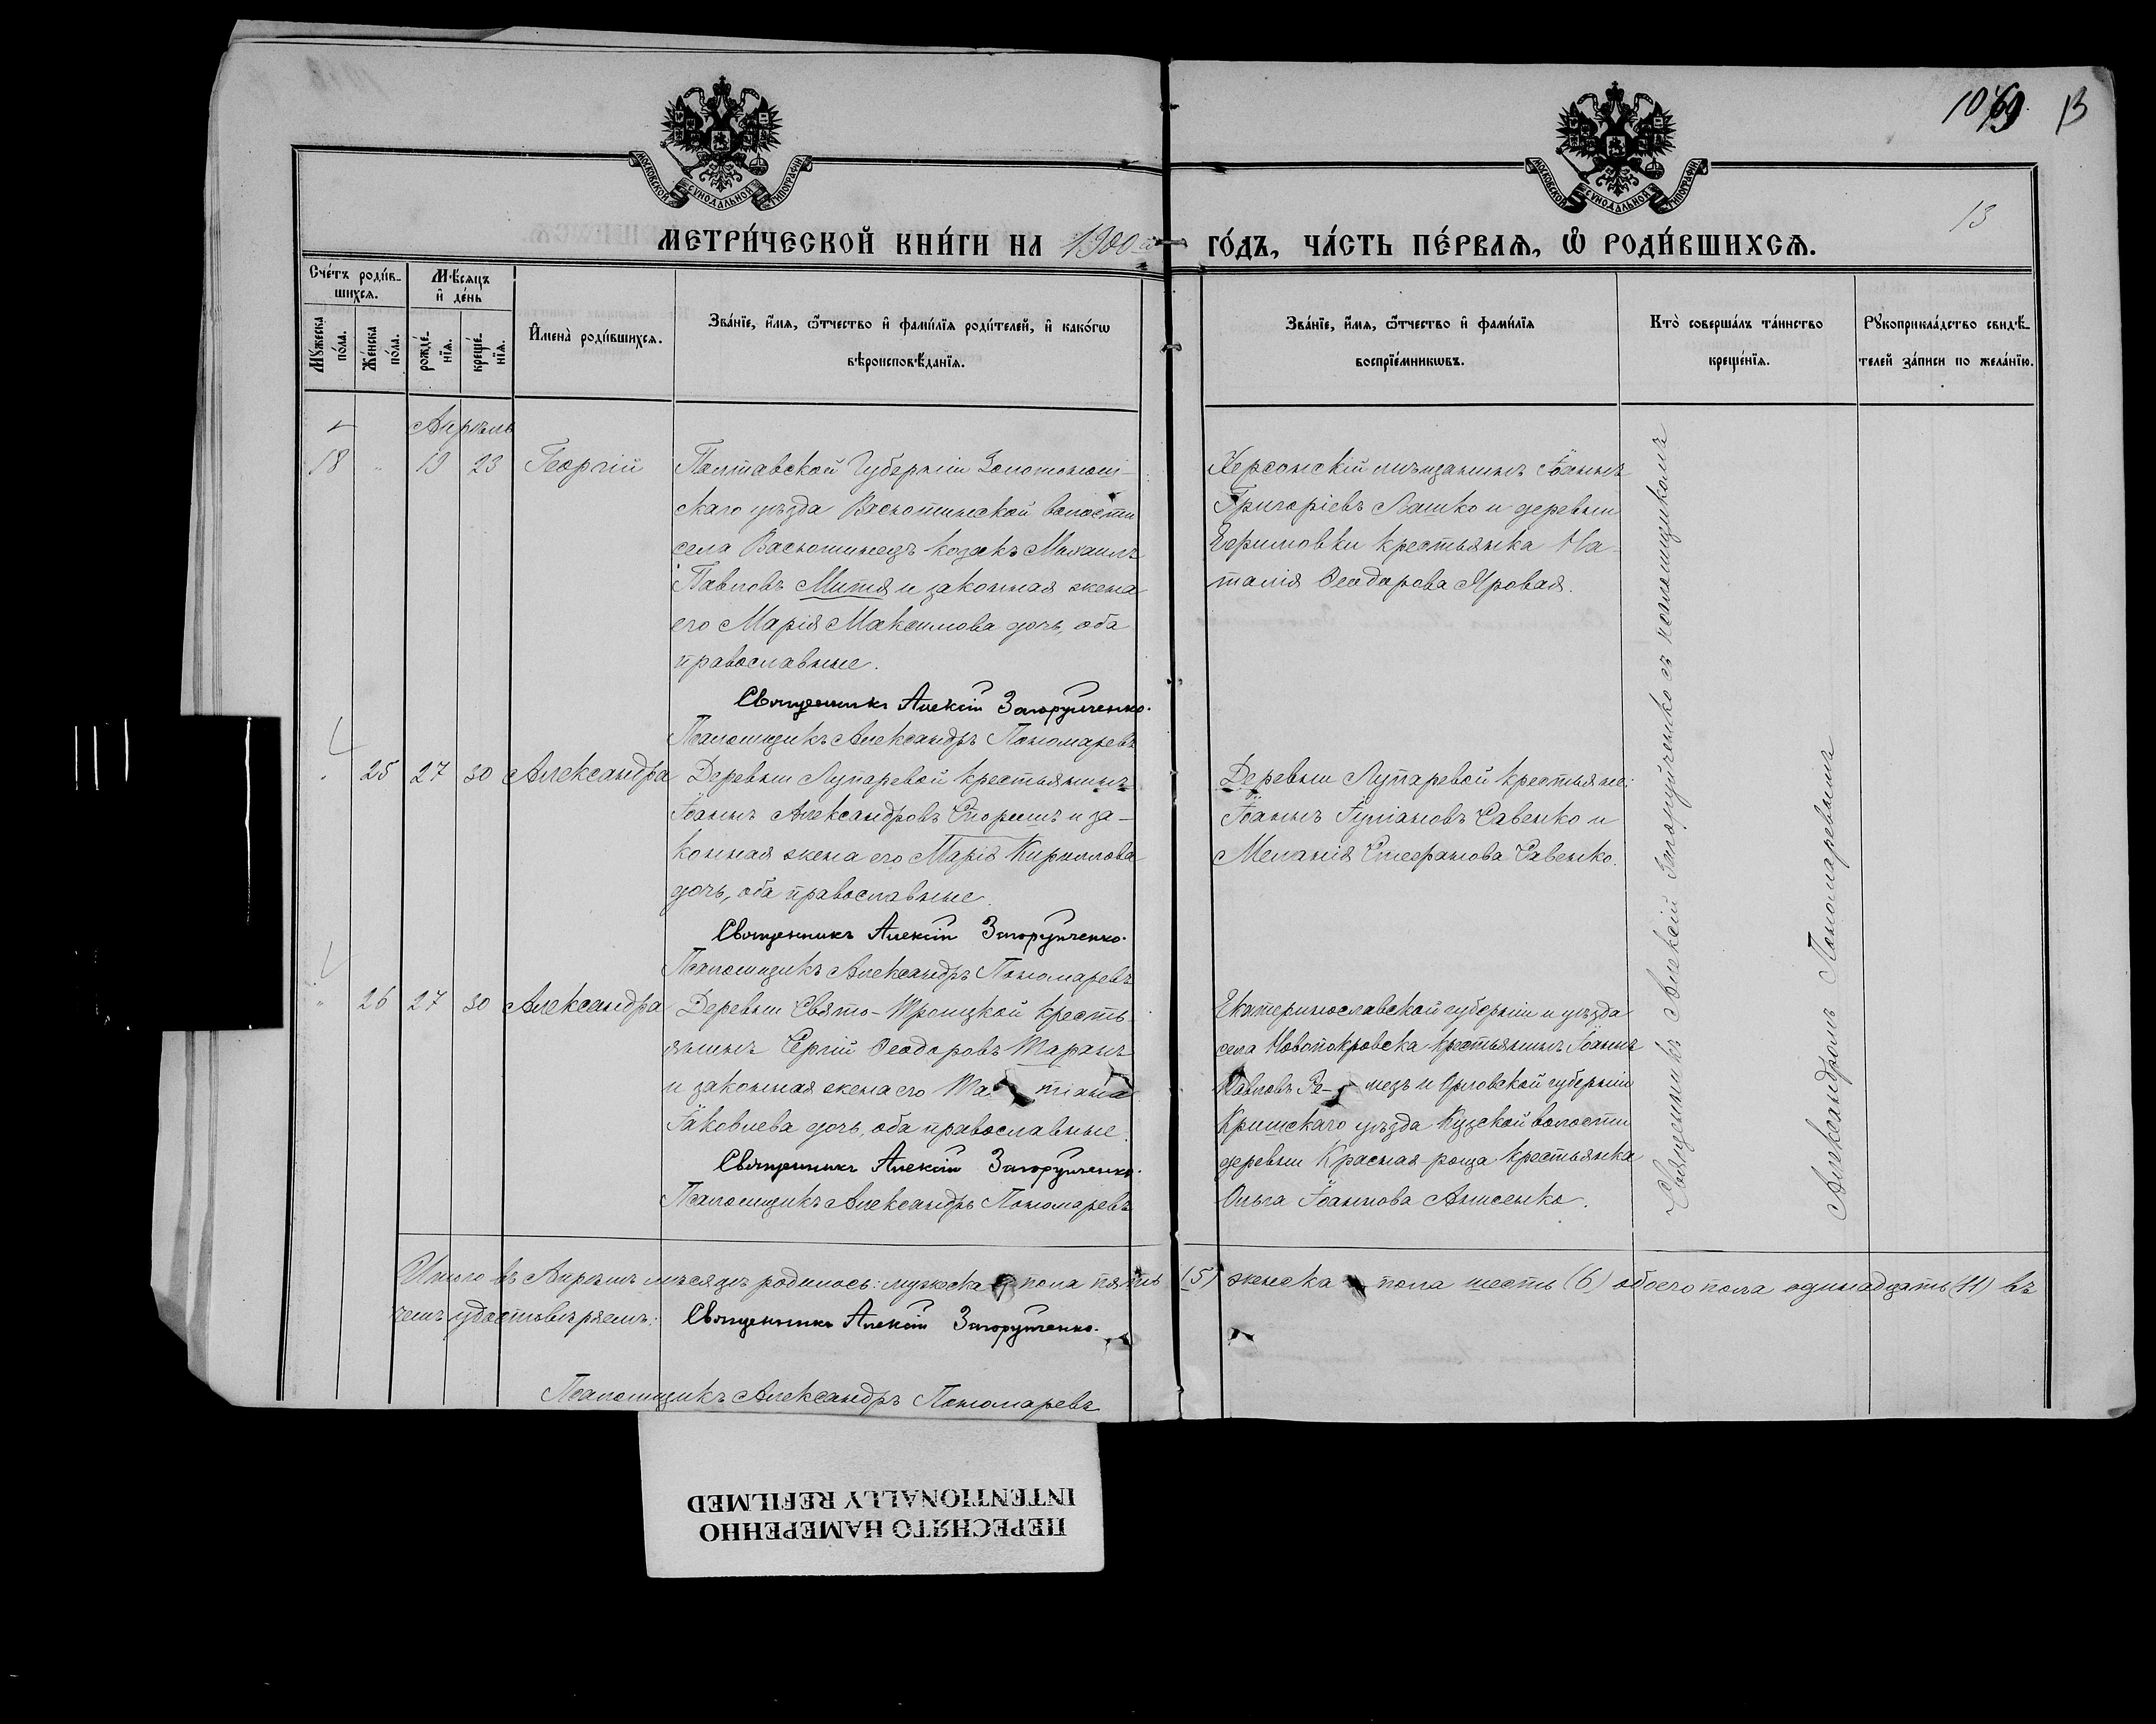 1069 13
МОСКОВСКОЙ СѴНОДАЛЬНОЙ ТИПОГРАФІИ
МОСКОВСКОЙ СѴНОДАЛЬНОЙ ТИПОГРАФІИ
13
МЕТРИ́ЧЕСКОЙ КНИ́ГИ НА 1900 й ГО́ДЪ, ЧА́СТЬ ПЕ́РВАЯ, Ѡ РОДИ́ВШИХСѦ.
Сче́тъ роди́в-
шихсѧ.
Мѣ́сяцъ
и҆ де́нь
Мꙋ́жеска по́ла.
Же́нска по́ла.
рожде́-
нїѧ.
креще́-
нїѧ.
И҆мена̀ роди́вшихсѧ.
Зва́нїе, и҆́мѧ, ѻ҆́тчество и҆ фами́лїѧ роди́телей, и҆ како́гѡ
вѣроисповѣ́данїѧ.
Зва́нїе, и҆́мѧ, ѻ҆́тчество и҆ фами́лїѧ
воспрїе́мникѡвъ.
Кто̀ соверша́лъ та́инство
креще́нїѧ.
Рꙋкоприкла́дство свидѣ́-
телей за́писи по жела́нїю.
Апрѣль
18 " 19 23 Георгій
Полтавской Губерніи Золотонош-
скаго уѣзда Васютинской волости
села Васютинецъ козакъ Михаилъ
Павловъ Митя и законная жена
его Марія Максимова дочь, оба
православные.
Священникъ Алексій Загорулченко.
Псаломщикъ Александръ Пономаревъ
Херсонскій мѣщанинъ Іоаннъ
Григоріевъ Лашко и деревни
Ефимовки крестьянка На-
талія Ѳеодорова Яровая.
" 25 27 30 Александра
Деревни Лупаревой крестьянинъ
Іоаннъ Александровъ Сторчъ и за-
конная жена его Марія Кириллова
дочь, оба православные.
Священникъ Алексій Загорулченко.
Псаломщикъ Александръ Пономаревъ
Деревни Лупаревой крестьяне:
Іоаннъ Іуліановъ Савенко и
Меланія Стефанова Савенко.
" 26 27 30 Александра
Деревни Свято-Троицкой кресть-
янинъ Сергій Ѳеодоровъ Таранъ
и законная жена его Та тіана
Іаковлева дочь, оба православные.
Священникъ Алексій Загорулченко.
Псаломщикъ Александръ Пономаревъ
Екатеринославской губерніи и уѣзда
села Новопокровска крестьянинъ Іоаннъ
Павловъ и Орловской губерніи
уѣзда волости
деревни Красная-роща крестьянка
Ольга Іоаннова Анисенко.
Священникъ Алексій Загорулченко съ псаломщикомъ
Александромъ Пономаревымъ
Итого въ Апрѣлѣ мѣсяцѣ родилось: мужеска пола пять (5) женска пола шесть (6) обоего пола одинадцать (11) въ
чемъ удостовѣряемъ: Священникъ Алексій Загорулченко.
Псаломщикъ Александръ Пономаревъ
ПЕРЕСНЯТО НАМЕРЕННО
INTENTIONALLY REFILMED